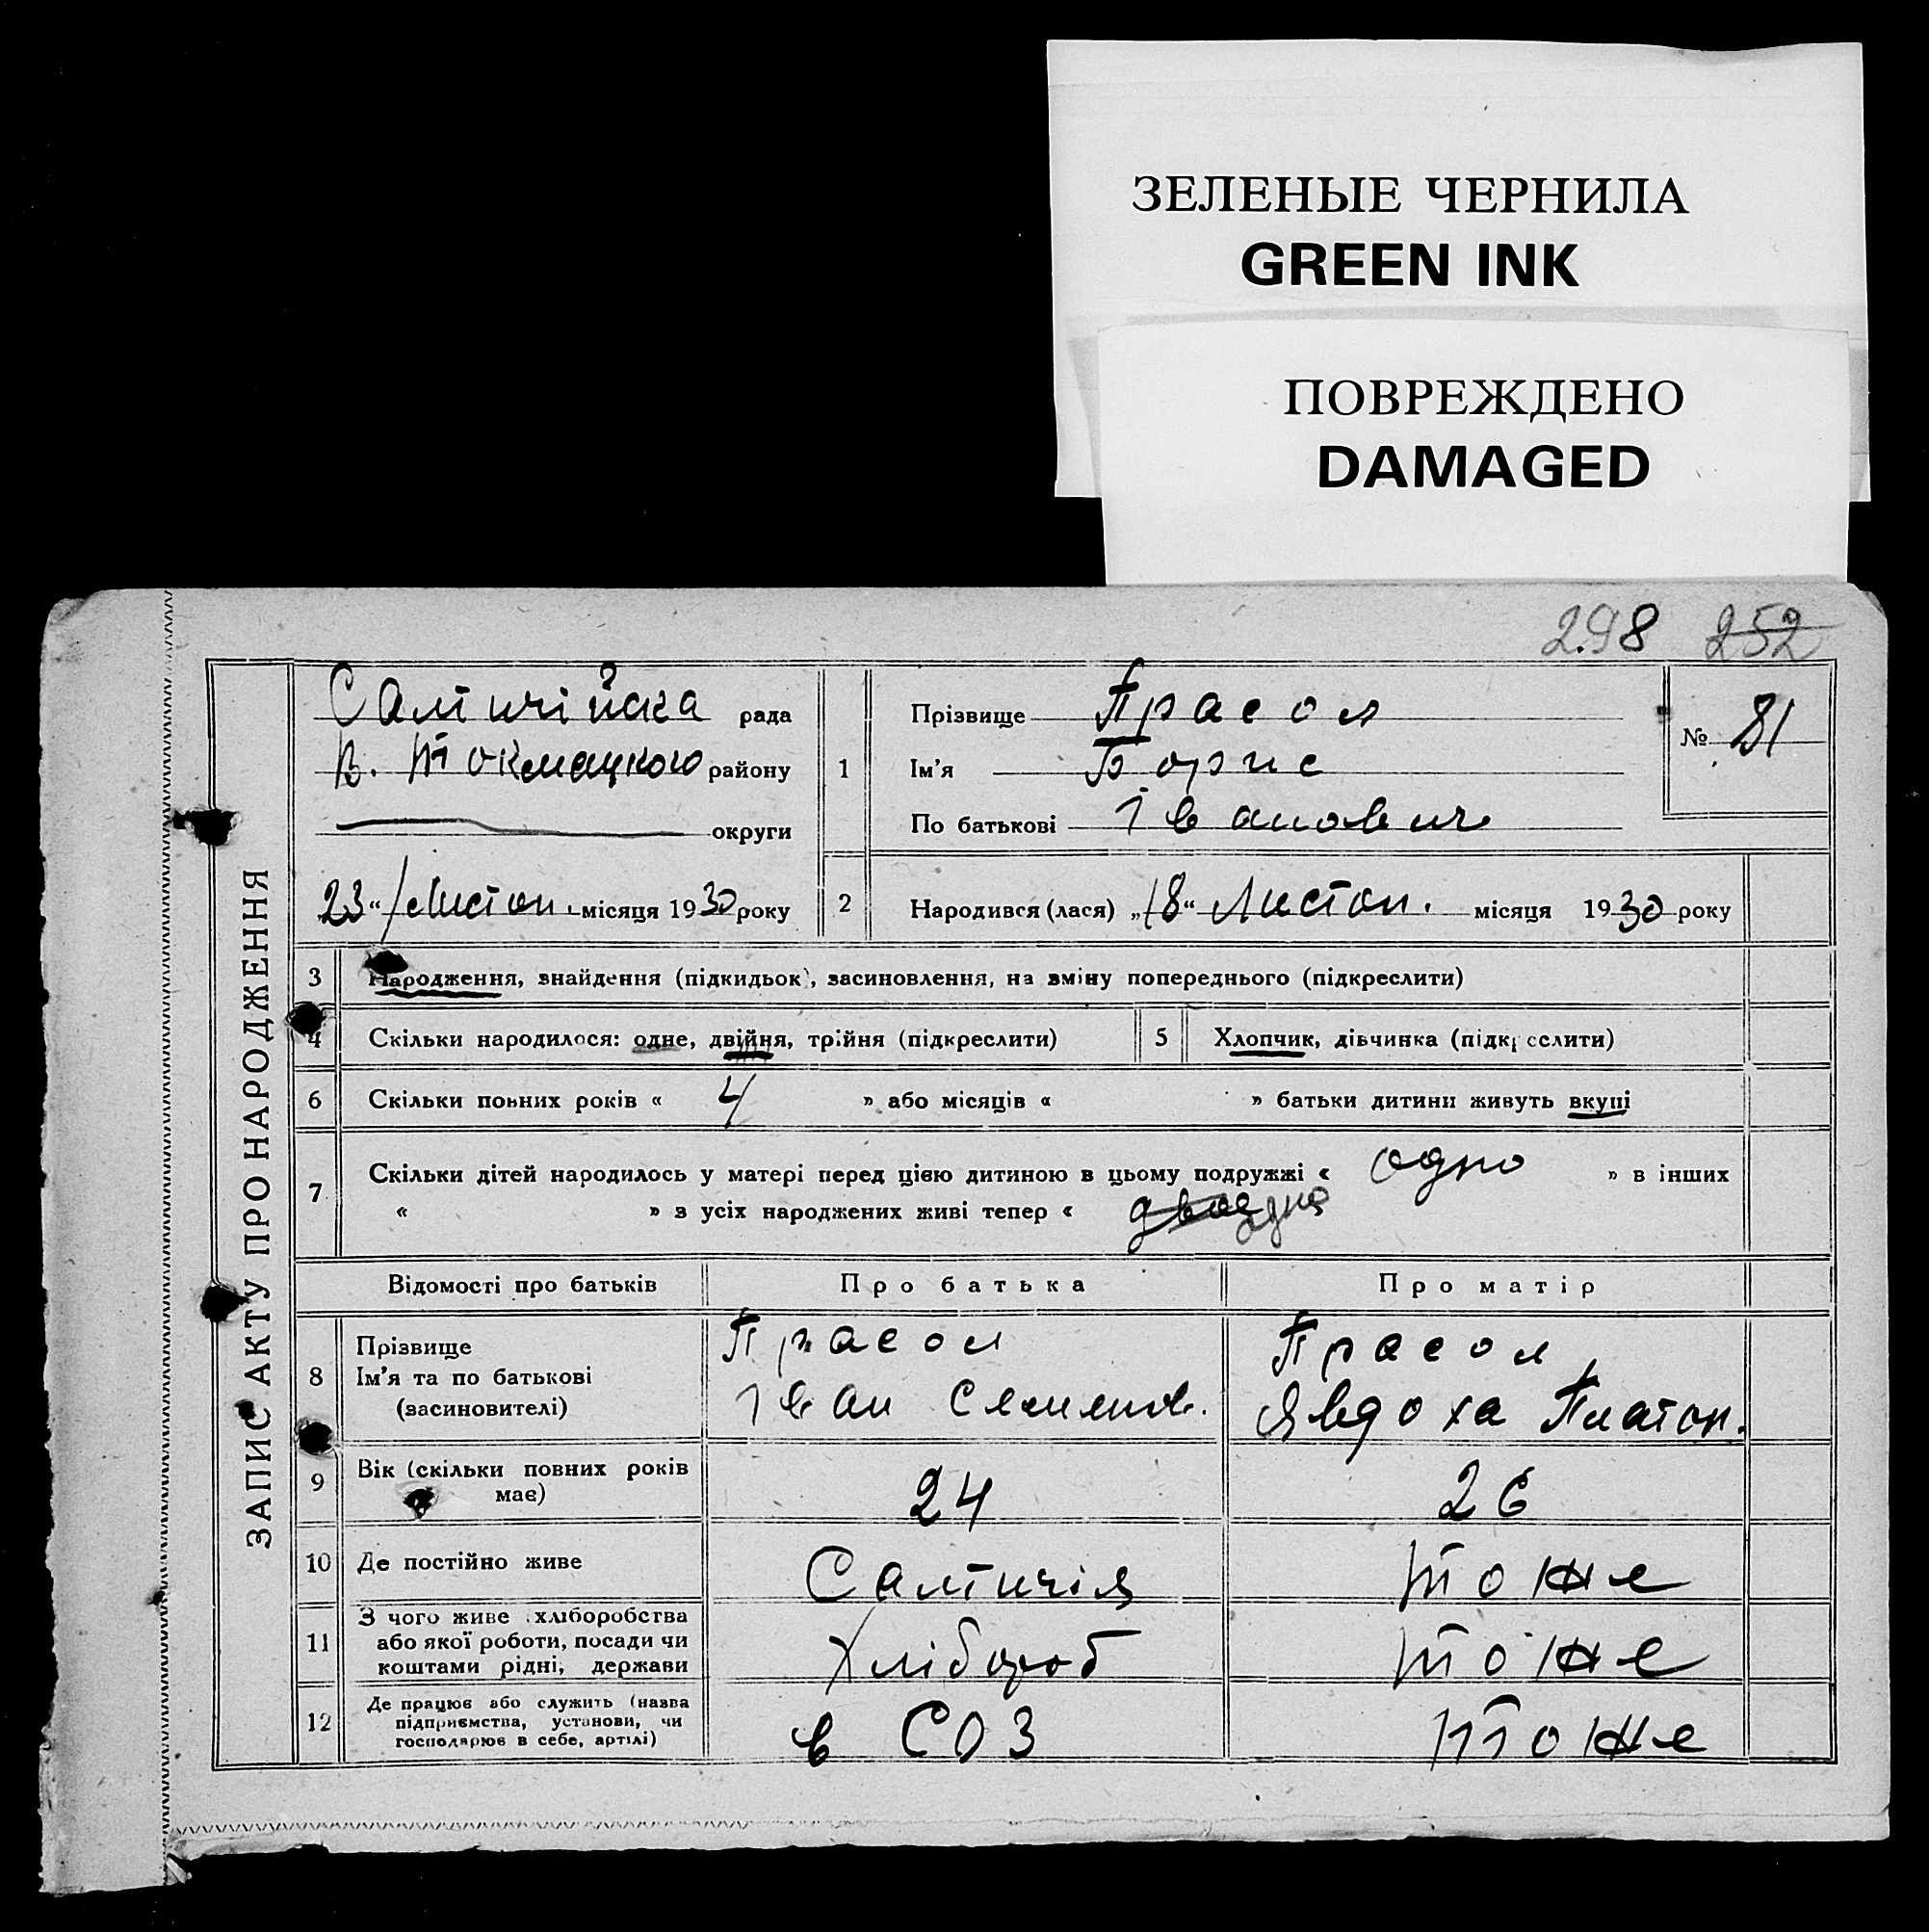 ЗЕЛЕНЫЕ ЧЕРНИЛА
GREEN INK
ПОВРЕЖДЕНО
DAMAGED
298 252
ЗАПИС АКТУ ПРО НАРОДЖЕННЯ
Салтичійська рада
В. Токмацького району
округи
23 “ Листоп. місяця 1930 року
1
Прізвище Прасол
Ім’я Борис
По батькові Іванович
№ 81
2 Народився (лася) „18“ Листоп. місяця 1930 року
3 Народження, знайдення (підкидьок), засиновлення, на зміну попереднього (підкреслити)
4 Скільки народилося: одне, двійня, трійня (підкреслити)
5 Хлопчик, дівчинка (підкреслити)
6 Скільки повних років « 4 » або місяців « » батьки дитини живуть вкупі
7 Скільки дітей народилось у матері перед цією дитиною в цьому подружжі « одно » в інших
« » з усіх народжених живі тепер « двоє одно
Відомості про батьків Про батька Про матір
8 Прізвище Прасол Прасол
Ім’я та по батькові Іван Семенов. Явдоха Платон.
(засиновителі)
9 Вік (скільки повних років має) 24 26
10 Де постійно живе Салтичія тоже
11 З чого живе хліборобства
або якої роботи, посади чи Хлібороб тоже
коштами рідні, держави
12 Де працює або служить (назва
підприємства, установи, чи в СОЗ тоже
господарює в себе, артілі)